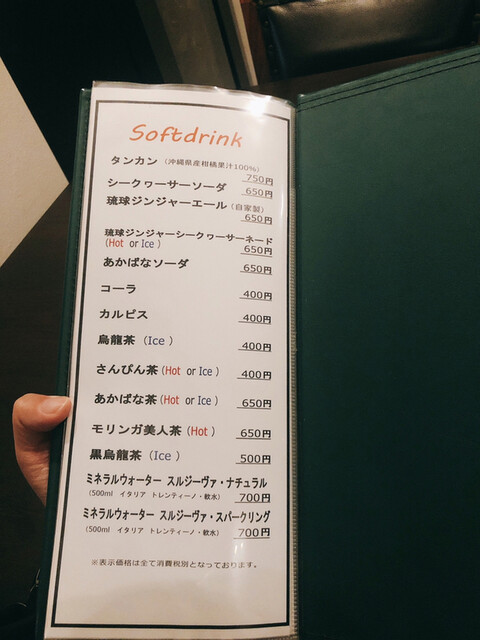 Softdrink
タンカン（沖縄県産柑橘果汁100%）
750円
シークヮーサーソーダ 650円
琉球ジンジャーエール（自家製）
650円
琉球ジンジャーシークヮーサーネード
(Hot or Ice ) 650円
あかばなソーダ 650円
コーラ 400円
カルピス 400円
烏龍茶 (Ice ) 400円
さんぴん茶 (Hot or Ice ) 400円
あかばな茶 (Hot or Ice ) 650円
モリンガ美人茶 (Hot ) 650円
黒烏龍茶 (Ice ) 500円
ミネラルウォーター スルジーヴァ・ナチュラル
(500ml イタリア トレンティーノ・軟水) 700円
ミネラルウォーター スルジーヴァ・スパークリング
(500ml イタリア トレンティーノ・軟水) 700円
※表示価格は全て消費税別となっております。